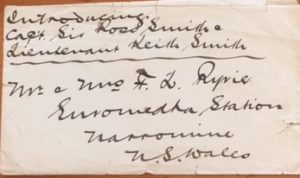 Introducing.
Capt. Sir Ross Smith &
Lieutenant Keith Smith
Mr & Mrs F. L. Ryrie
Euromedha Station
Narromine
N.S. Wales